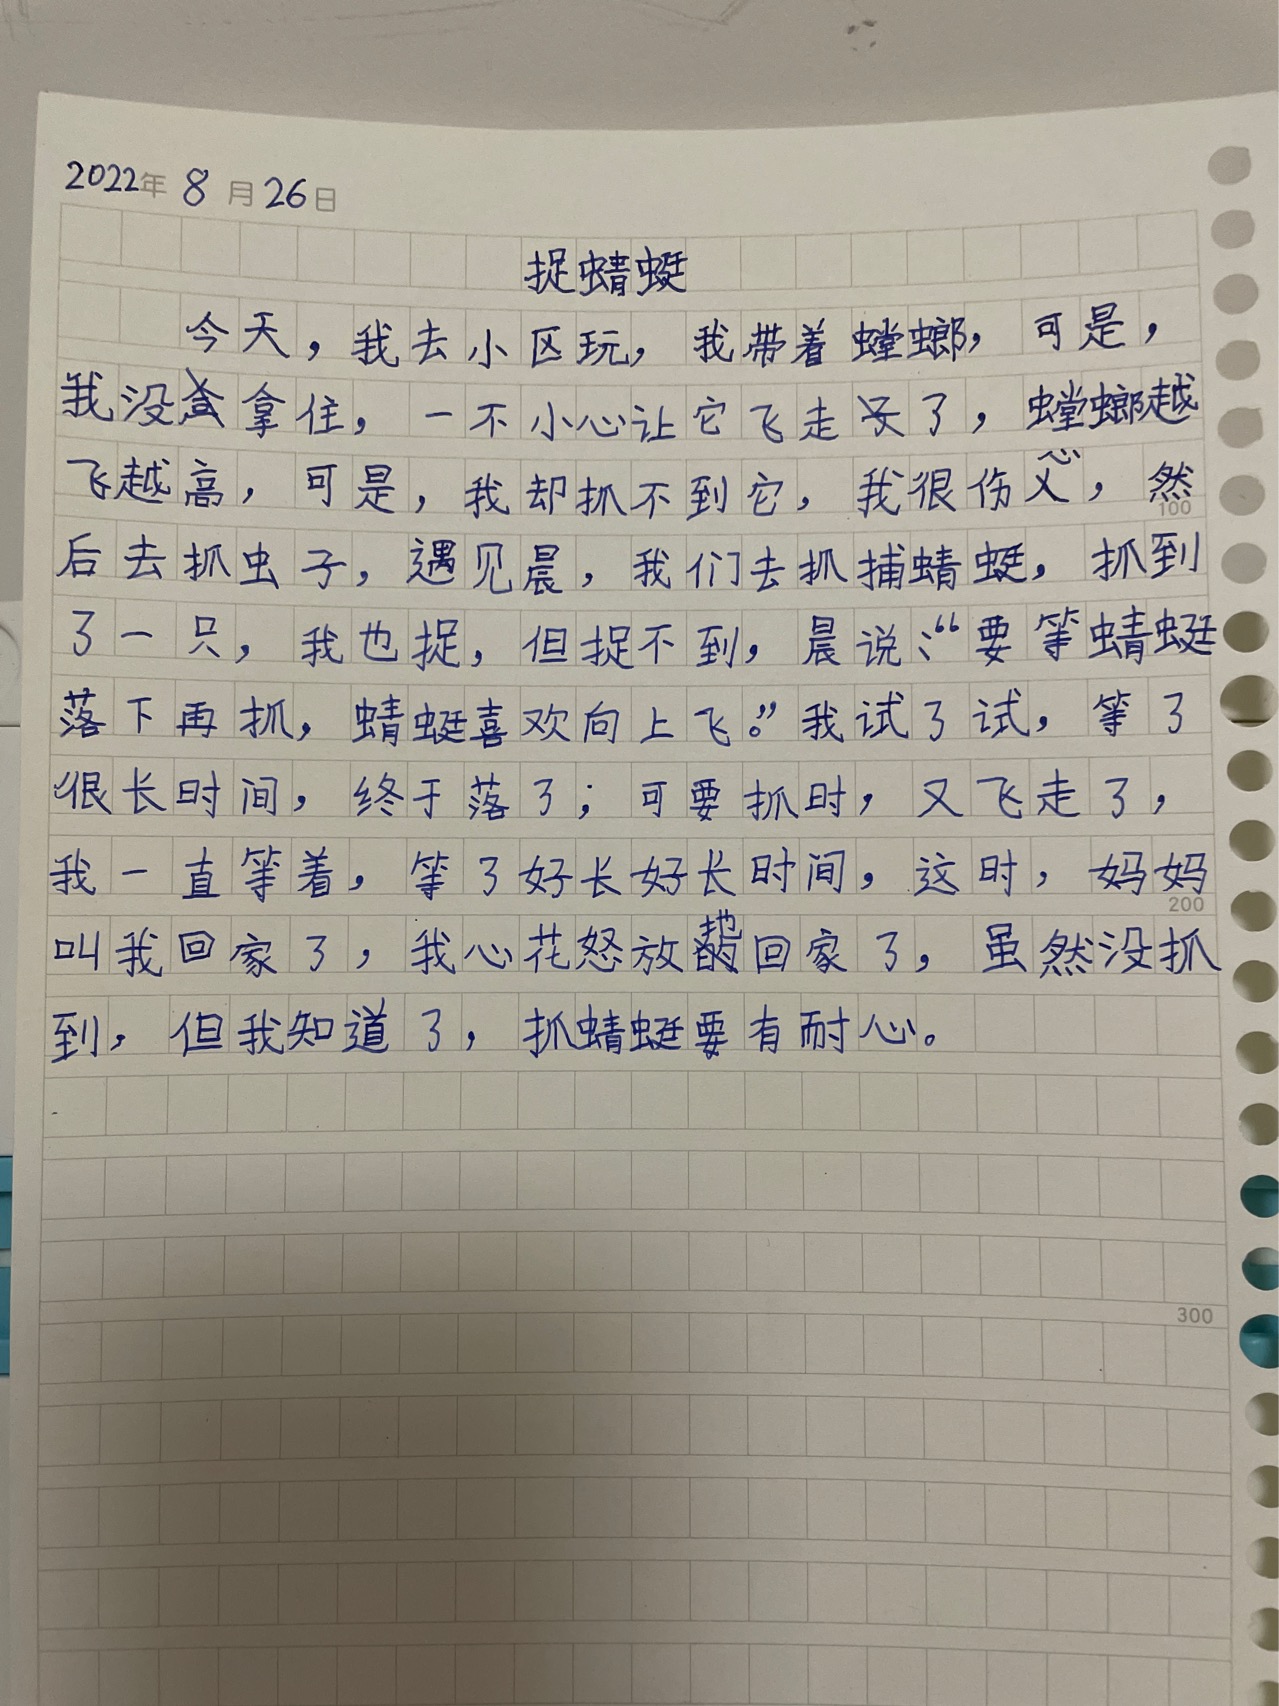 2022年 8月26日
捉蜻蜓
今天，我去小区玩，我带着螳螂，可是，
我没拿住，一不小心让它飞走了，螳螂越
飞越高，可是，我却抓不到它，我很伤心，然
100
后去抓虫子，遇见晨，我们去抓捕蜻蜓，抓到
了一只，我也捉，但捉不到，晨说：“要等蜻蜓
落下再抓，蜻蜓喜欢向上飞。”我试了试，等了
很长时间，终于落了；可要抓时，又飞走了，
我一直等着，等了好长好长时间，这时，妈妈
200
叫我回家了，我心花怒放地回家了，虽然没抓
到，但我知道了，抓蜻蜓要有耐心。
300